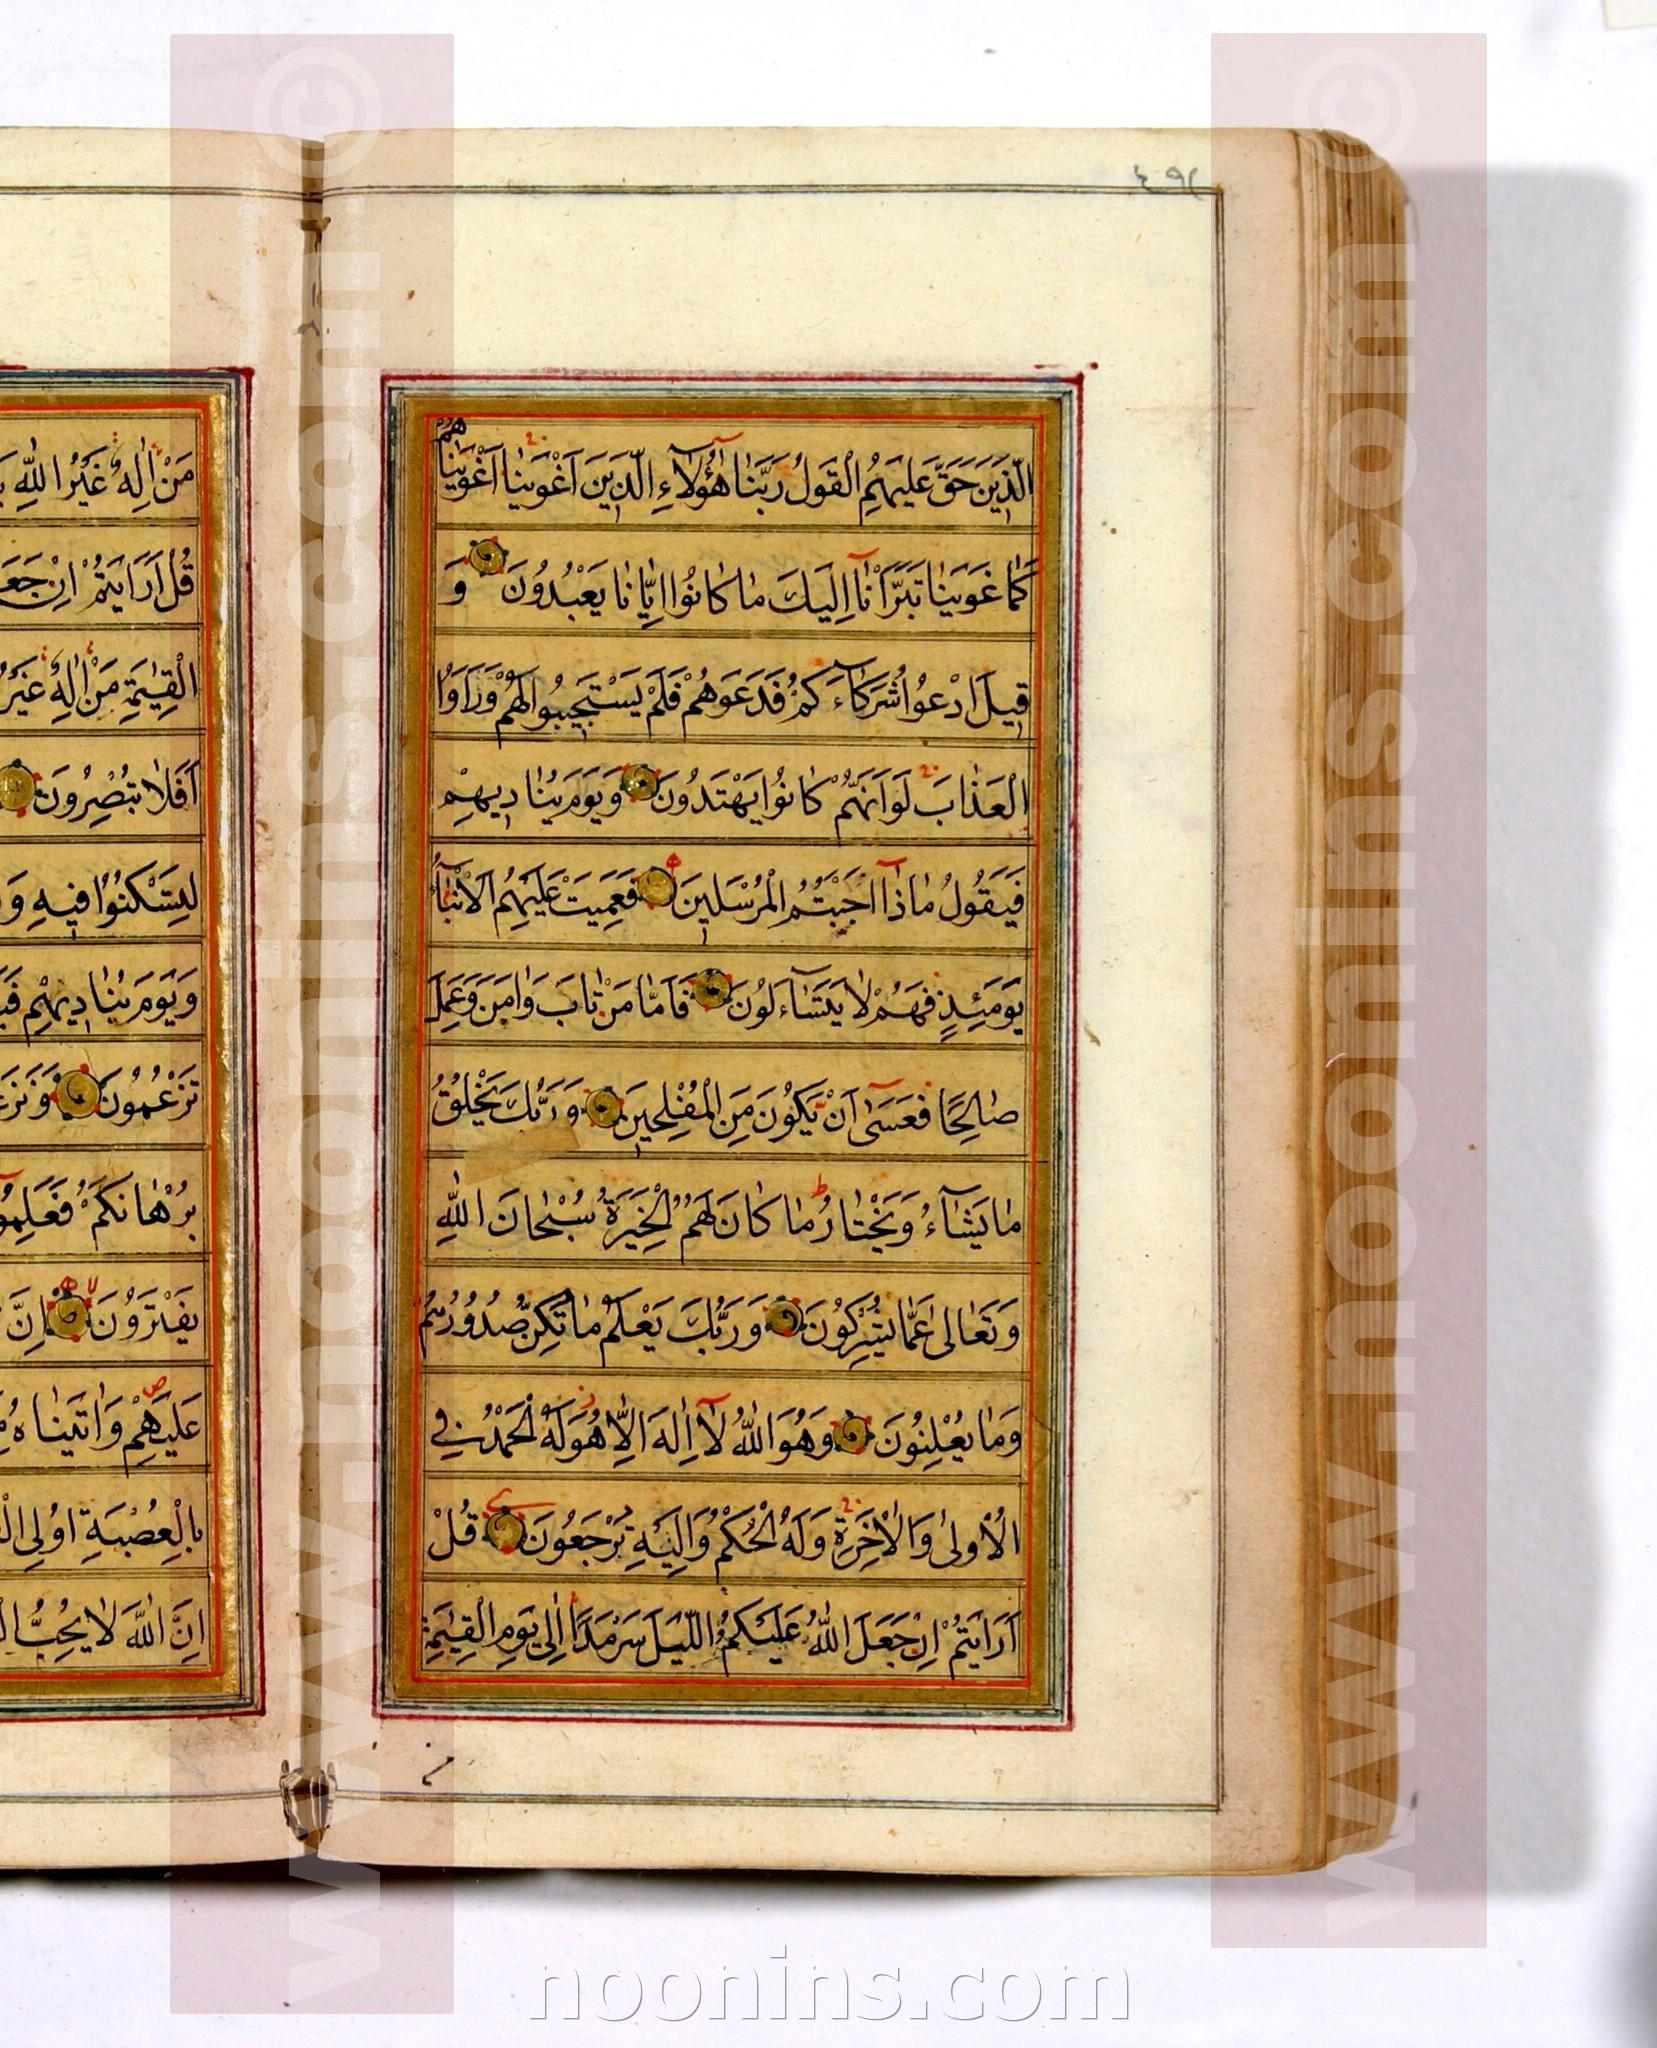 الَّذِينَ حَقَّ عَلَيْهِمُ الْقَوْلُ رَبَّنَا هٰؤُلَاءِ الَّذِينَ اَغْوَيْنَا اَغْوَيْنَاهُمْ
كَمَا غَوَيْنَا تَبَرَّاْنَا اِلَيْكَ مَا كَانُوا اِيَّانَا يَعْبُدُونَ وَ
قِيلَ ادْعُوا شُرَكَاءَكُمْ فَدَعَوْهُمْ فَلَمْ يَسْتَجِيبُوا لَهُمْ وَرَاَوُا
الْعَذَابَ لَوْ اَنَّهُمْ كَانُوا يَهْتَدُونَ وَيَوْمَ يُنَادِيهِمْ
فَيَقُولُ مَاذَا اَجَبْتُمُ الْمُرْسَلِينَ فَعَمِيَتْ عَلَيْهِمُ الْاَنْبَاءُ
يَوْمَئِذٍ فَهُمْ لَا يَتَسَاءَلُونَ فَاَمَّا مَنْ تَابَ وَاٰمَنَ وَعَمِلَ
صَالِحًا فَعَسٰى اَنْ يَكُونَ مِنَ الْمُفْلِحِينَ وَرَبُّكَ يَخْلُقُ
مَا يَشَاءُ وَيَخْتَارُ مَا كَانَ لَهُمُ الْخِيَرَةُ سُبْحَانَ اللّٰهِ
وَتَعَالٰى عَمَّا يُشْرِكُونَ وَرَبُّكَ يَعْلَمُ مَا تُكِنُّ صُدُورُهُمْ
وَمَا يُعْلِنُونَ وَهُوَ اللّٰهُ لَا اِلٰهَ اِلَّا هُوَ لَهُ الْحَمْدُ فِي
الْاُولٰى وَالْاٰخِرَةِ وَلَهُ الْحُكْمُ وَاِلَيْهِ تُرْجَعُونَ قُلْ
اَرَاَيْتُمْ اِنْ جَعَلَ اللّٰهُ عَلَيْكُمُ اللَّيْلَ سَرْمَدًا اِلٰى يَوْمِ الْقِيٰمَةِ
مَنْ اِلٰهٌ غَيْرُ اللّٰهِ
قُلْ اَرَاَيْتُمْ اِنْ جَعَلَ
الْقِيٰمَةِ مَنْ اِلٰهٌ غَيْرُ
اَفَلَا تُبْصِرُونَ
لِتَسْكُنُوا فِيهِ وَ
وَيَوْمَ يُنَادِيهِمْ
تَزْعُمُونَ
بُرْهَانَكُمْ فَعَلِمُوا
يَفْتَرُونَ اِنَّ
عَلَيْهِمْ وَاٰتَيْنَاهُ
بِالْعُصْبَةِ اُولِي
اِنَّ اللّٰهَ لَا يُحِبُّ
www.noonins.com ©
www.noonins.com ©
noonins.com